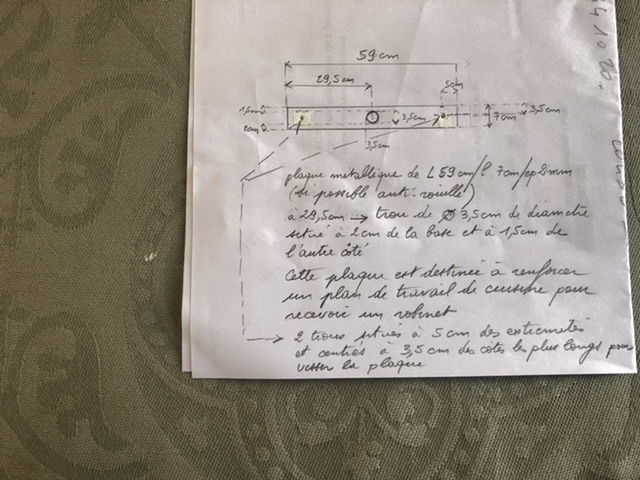 59 cm
29,5 cm
5cm
1,5cm
3,5cm
7cm
3,5cm
2cm
3,5cm
plaque métallique de L 59cm/l. 7cm/ep 2mm
(si possible anti-rouille)
à 29,5cm → trou de Ø 3,5cm de diamètre
situé à 2cm de la base et à 1,5cm de
l'autre côté
Cette plaque est destinée à renforcer
un plan de travail de cuisine pour
recevoir un robinet
→ 2 trous situés à 5 cm des extremités
et centrés à 3,5 cm des côtés les plus longs pour
visser la plaque